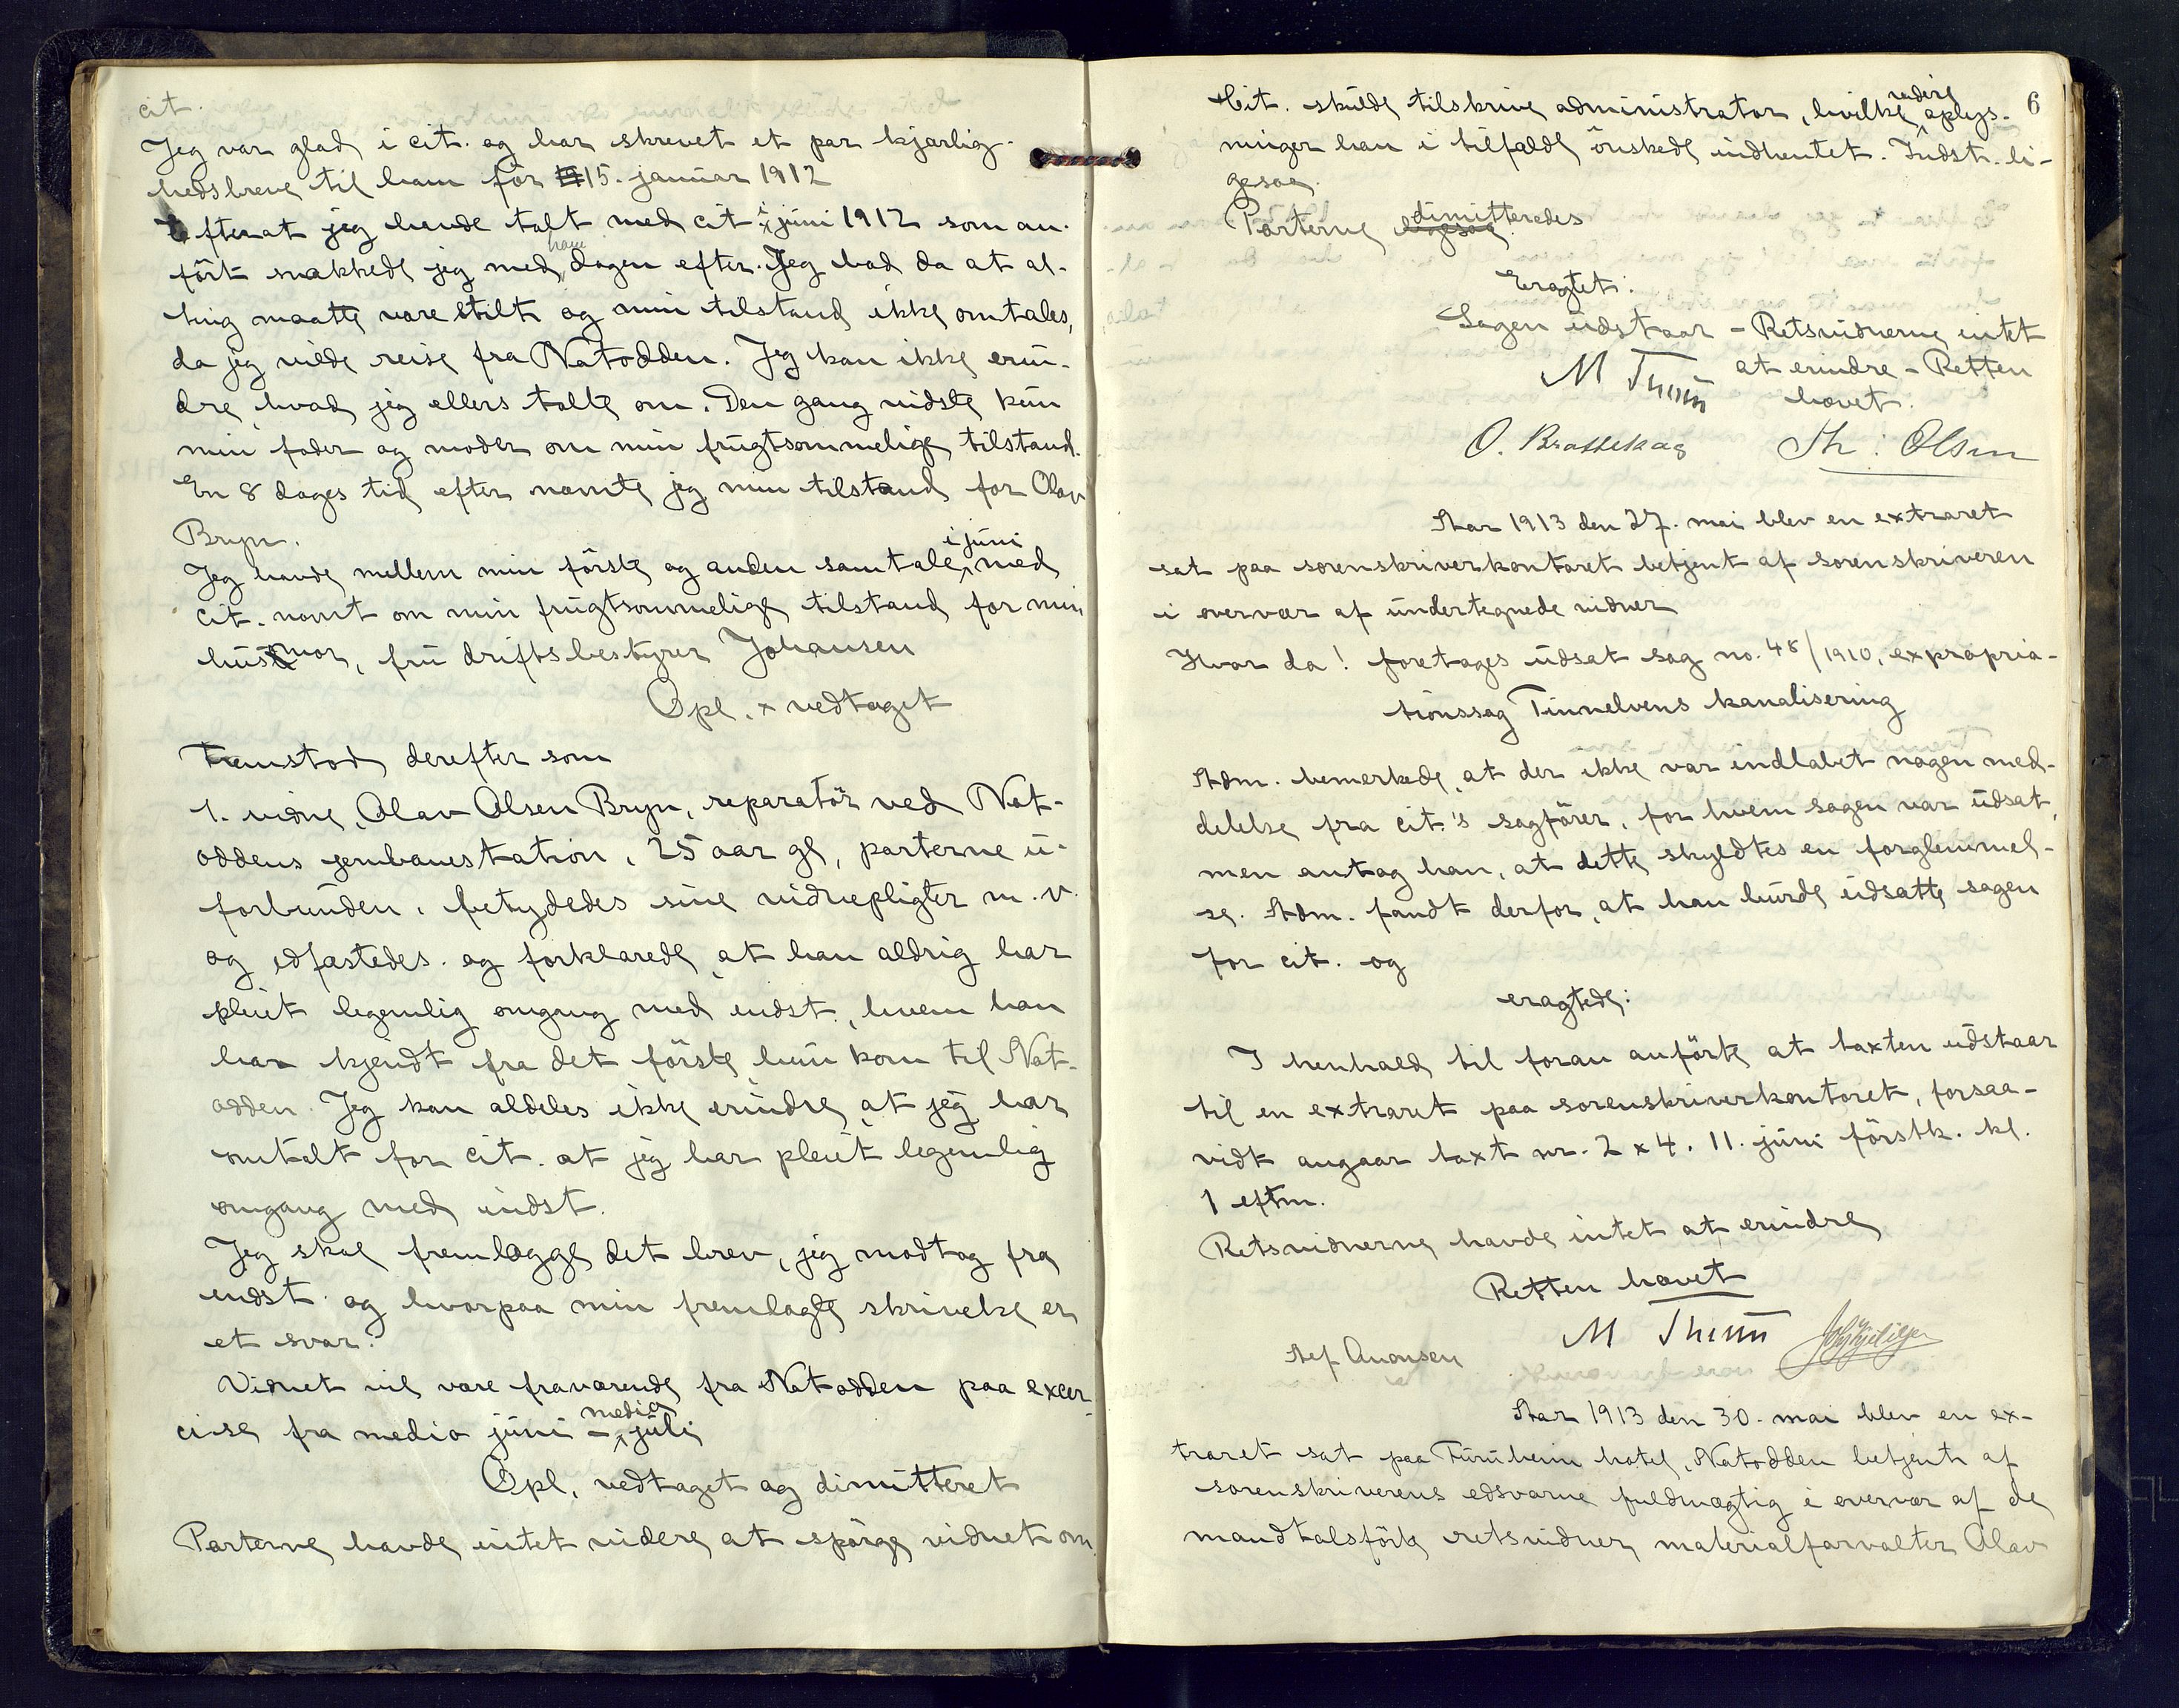 cit.
Jeg var glad i cit. og har skrevet et par kjærlig-
hedsbreve til ham før 15. januar 1912
Efterat jeg havde talt med cit i juni 1912 som an-
ført snakkede jeg med ham dagen efter. Jeg bad da at al-
ting maatte være stilt og min tilstand ikke omtales,
da jeg vilde reise fra Notodden. Jeg kan ikke erin-
dre, hvad jeg ellers talte om. Den gang vidste kun
min fader og moder om min frugtsommelige tilstand.
En 8 dages tid efter nævnte jeg min tilstand for Olav
Bryn.
Jeg havde mellem min første og anden samtale i juni med
cit. nævnt om min frugtsommelige tilstand for min
husmor, fru driftsbestyrer Johansen
Opl. x vedtaget
Fremstod derefter som
1. vidne, Olav Olsen Bryn, reparatør ved Not-
oddens jernbanestation, 25 aar gl, parterne u-
forbunden, betydedes sine vidnepligter m. v.
og edfæstedes og forklarede, at han aldrig har
pleiet legemlig omgang med indst., hvem han
har kjendt fra det første hun kom til Not-
odden. Jeg kan aldeles ikke erindre, at jeg har
omtalt for cit. at jeg har pleiet legemlig
omgang med indst.
Jeg skal fremlægge det brev, jeg modtog fra
indst. og hvorpaa min fremlagte skrivelse er
et svar.
Vidnet vil være fraværende fra Notodden paa exer-
cise fra medio juni - medio juli
Opl, vedtaget og dimitteret
Parterne havde intet videre at spørge vidnet om.
6
Cit. skulde tilskrive administrator, hvilke videre oplys-
ninger han i tilfælde ønskede indhentet. Indst. li-
gesaa.
Parterne dimitteredes
Eragtet:
Sagen udstaar - Retsvidnerne intet
at erindre - Retten
hævet.
M Thuun
O. Brattekaas Th: Olsen
Aar 1913 den 27. mai blev en extraret
sat paa sorenskriverkontoret betjent af sorenskriveren
i overvær af undertegnede vidner
Hvor da! foretages udsat sag no. 48/1910, expropria-
tionssag Tinnelvens kanalisering
Adm. bemerkede, at der ikke var indløbet nogen med-
delelse fra cit.'s sagfører, for hvem sagen var udsat,
men antog han, at dette skyldtes en forglemmel-
se. Adm. fandt derfor, at han burde udsætte sagen
for cit. og
eragtede:
I henhold til foran anførte at taxten udstaar
til en extraret paa sorenskriverkontoret, forsaa-
vidt angaar taxt nr. 2 x 4. 11. juni førstk. kl.
1 eftm.
Retsvidnerne havde intet at erindre
Retten hævet
M Thuun
Alf Aronsen
Aar 1913 den 30. mai blev en ex-
traret sat paa Furuheim hotel, Notodden betjent af
sorenskriverens edsvorne fuldmægtig i overvær af de
mandtalsførte retsvidner, materialforvalter Olav